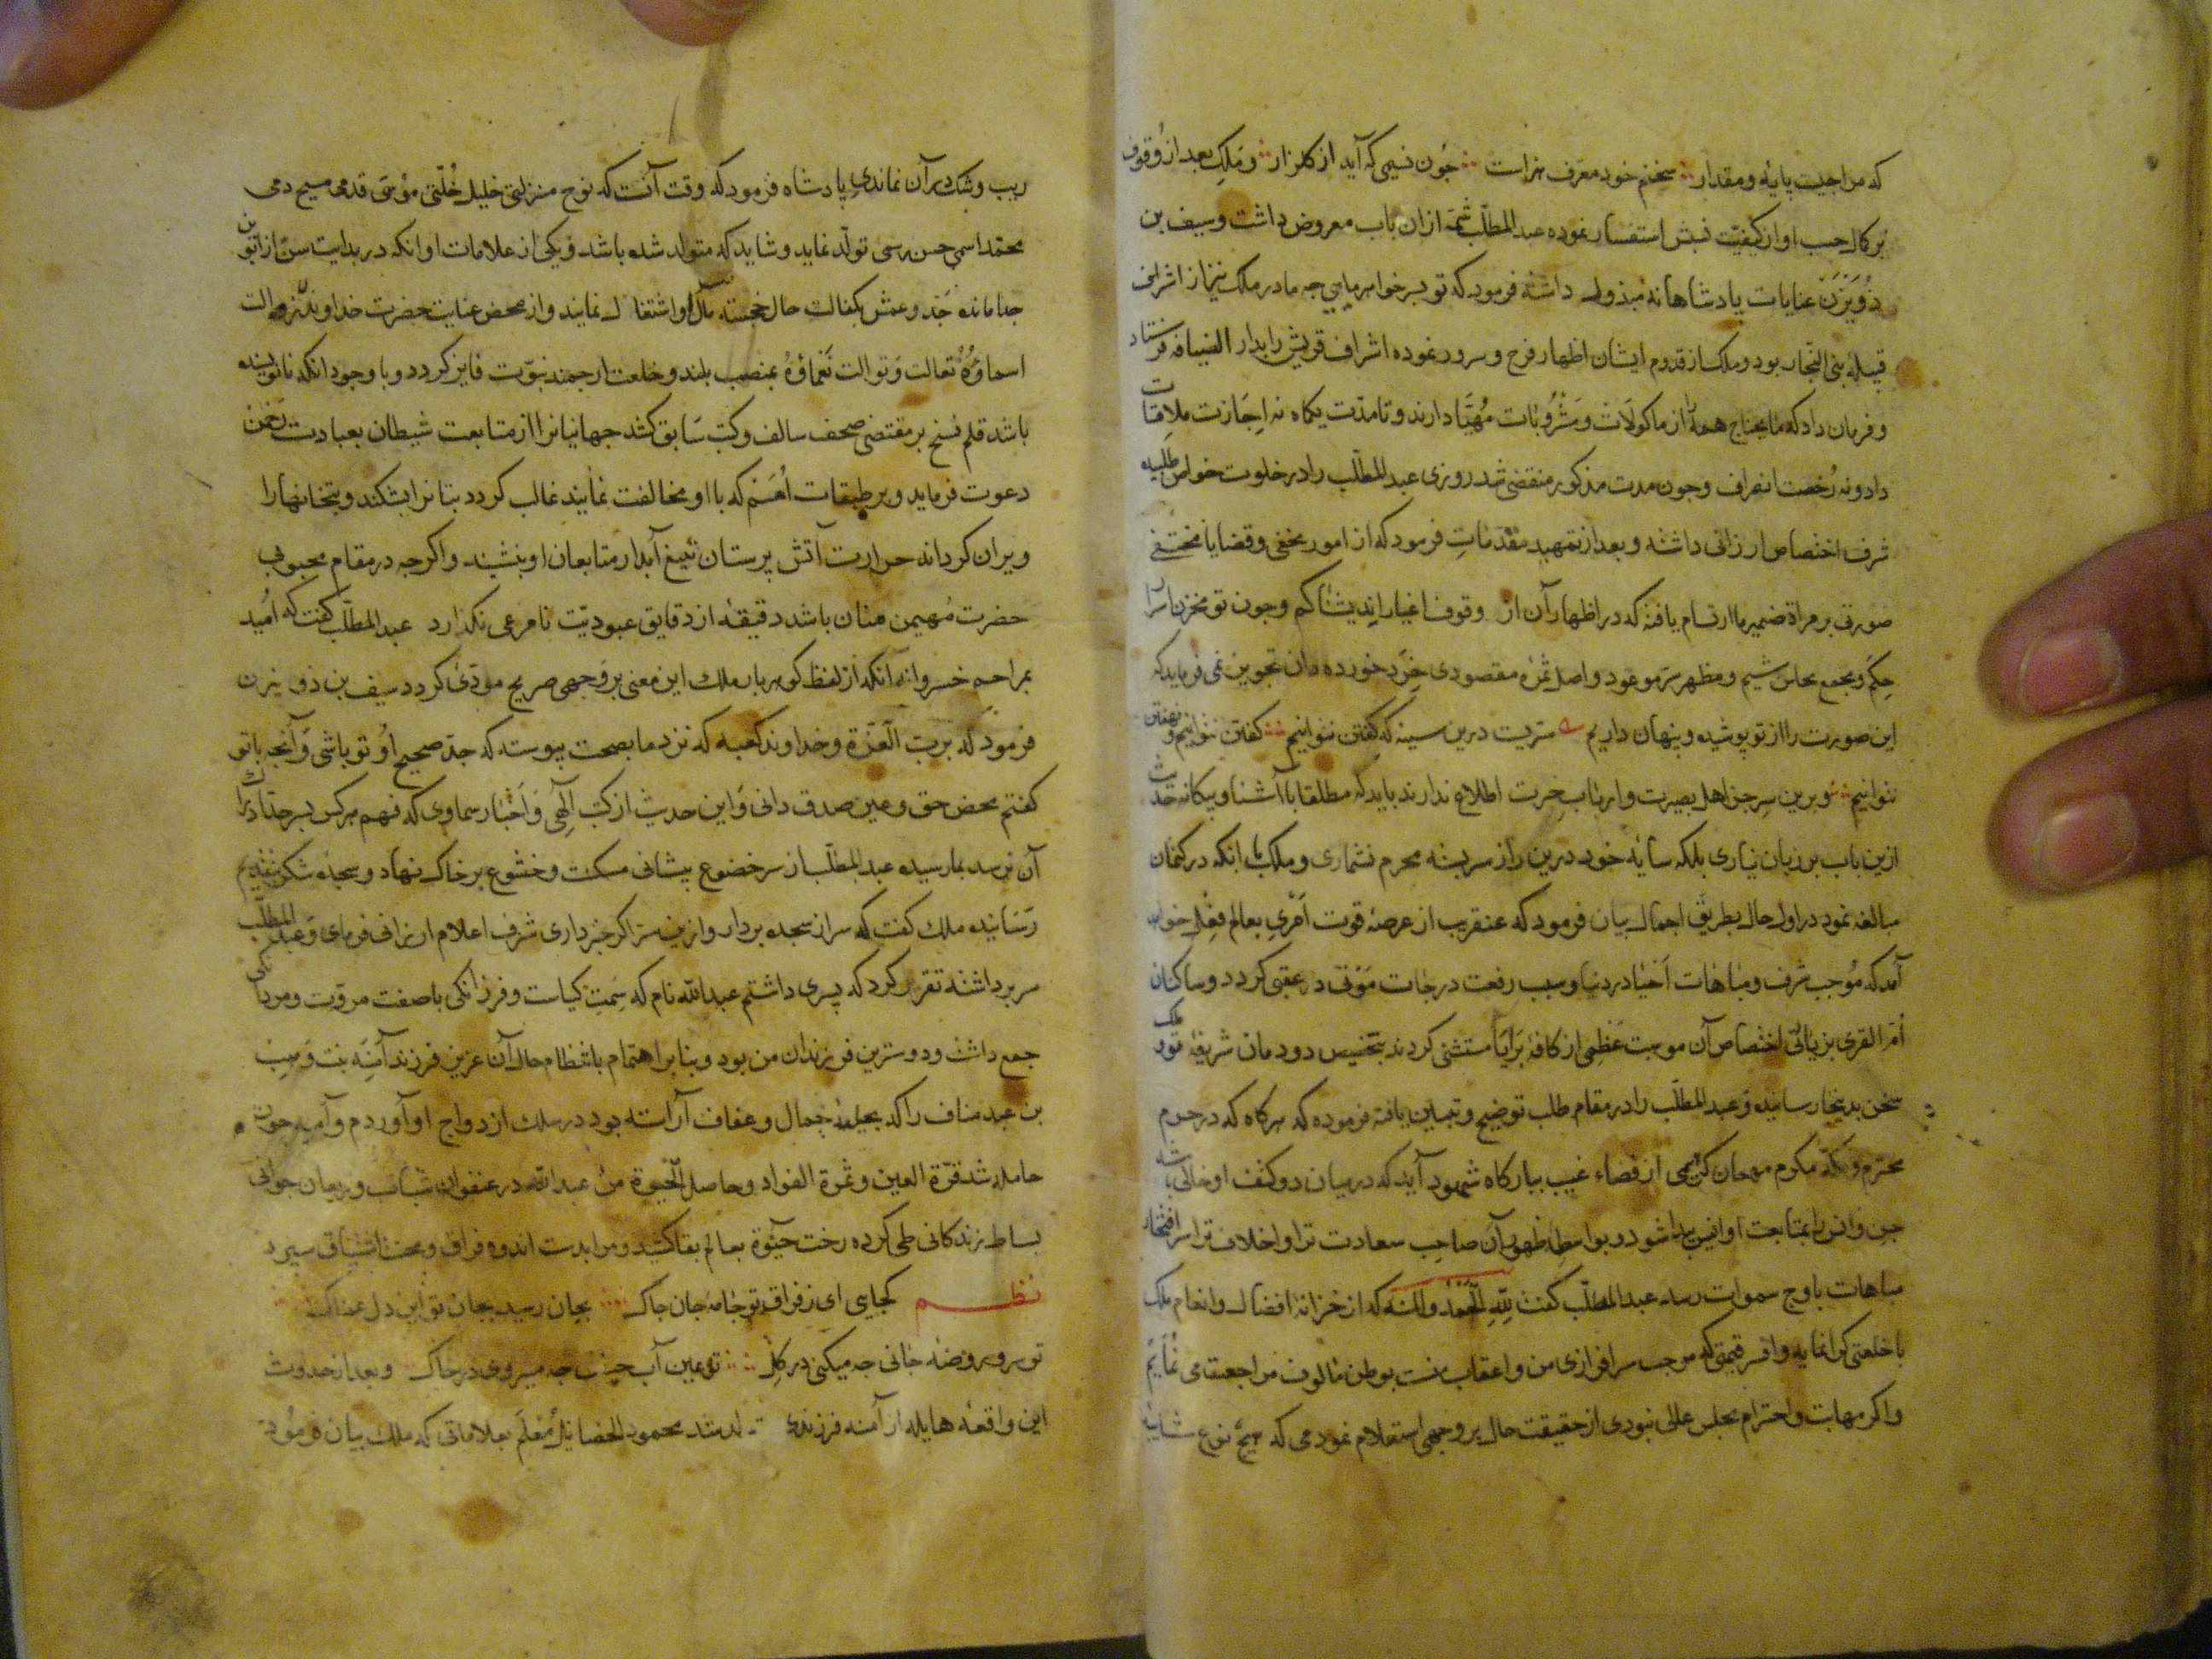 که مرا جیست پایه و مقدار سخنم خود معرف هنراست جون نسیمی که آید از کلزار و ملک بعد از وقوف
بر کمال حسب او از کیفیّت نسبش استفسار نموده عبد المطلّب شمّهٔ ازان باب معروض داشت و سیف بن
ذو یزن عنایات پادشاهانه مبذول داشته فرمود که تو بسر خواهر مایی جه مادر ملک نیز از اشراف
قبیلهٔ بنی النجّار بود و ملک از قدوم ایشان اظهار فرح و سرور نموده اشراف قریش را بدار الضیافه فرستاد
و فرمان داد که ما یحتاج همه را از ماکولات و مشروبات مهیّا دارند و تا مدّت یکماه نه اجازت ملاقات
داد و نه رخصت انصراف وجون مدت مذکور منقضی شد روزی عبد المطلّب را در خلوت خواص طلبیده
شرف اختصاص ارزانی داشته و بعد از تمهید مقدمات فرمود که از امور مخفی و قضایا مختفی
صورتی بر مرآة ضمیر ما ارتسام یافته که در اظهار آن از وقوف اغیار اندیشناکم وجون تو مخزن اسرار
حکم و مجمع محاسن شیم و مظهر سرّ موعود و اصل ثمرهٔ مقصودی خرد خورده دان تجویز نمی فرماید که
این صورت را از تو پوشیده و پنهان داریم سرّیست درین سینه که کفتن نتوانیم کفتن نتوانیم و نهفتن
نتوانیم و برین سر جز اهل بصیرت و ارباب خبرت اطلاع ندارند باید که مطلقا با آشنا و بیکانه حدیث
ازین باب بر زبان نیاری بلکه سایهٔ خود درین راز سر بسته محرم نشماری و ملک با انکه در کتمان
مبالغه نمود در اول حال بطریق اجمال بیان فرمود که عنقریب از عرصهٔ قوت امری بعالم فعل خواهد
آمد که موجب شرف و مباهات احیا در دنیا و سبب رفعت درجات موتی در عقبی کردد و ساکنان
امّ القری بزیادتی اختصاص آن موهبت عظمی از کافهٔ برایا مستثنی کردند بتخصیص دودمان شریفهٔ تو و ملک
سخن بدینجا رسانیده و عبد المطلّب را در مقام طلب توضیح و تبیین یافته فرموده که هرکاه که در حرم
محترم و مکّهٔ مکرم مهمان کریمی از فضاء غیب ببارکاه شهود آید که در میان دو کتف او خالی باشد
جن و انس را بمتابعت او انس پیدا شود و بواسطهٔ ظهور آن صاحب سعادت ترا و اخلاف ترا سر افتخار
مباهات باوج سموات رسد عبد المطلّب کفت للّه الحمد و المنّه که از خزانهٔ افضال و انعام ملک
با خلعتی کرانمایه و افسر قیمتی که موجب سرافرازی من و اعقاب منست بوطن مالوف مراجعت می نمایم
و اکر مهابت و احترام مجلس عالی نبودی از حقیقت حال بر وجهی استعلام نمودمی که هیچ نوع شایبهٔ
ریب و شک در آن نماندی پادشاه فرمود که وقت آنست که نوح منزلتی خلیل خلّتی موسی قدمی مسیح دمی
محمّد اسمی حسن رسمی تولّد نماید و شاید که متولّد شده باشد و یکی از علامات او انکه در بدایت سنّ از ابوین
جدا مانده جدّ و عمش بکفالت حال خجسته مآل او اشتغال نمایند و از محض عنایت حضرت خداوندی والت
اسماؤه تعالت و توالت نعماؤه بمنصب بلند و خلعت ارجمند نبوّت فایز کردد و با وجود انکه نانویسنده
باشد قلم نسخ بر مقتضی صحف سالف و کتب سابق کشد جهانیانرا از متابعت شیطان بعبادت رحمن
دعوت فرماید و بر طبقات امم که با او مخالفت نمایند غالب کردد بتانرا بشکند و بتخانهارا
ویران کرداند حرارت آتش پرستان بتیغ آبدار متابعان او بنشیند و اکرجه در مقام محبوبی
حضرت مهیمن منان باشد دقیقهٔ از دقایق عبودیّت نامرعی نکذارد عبد المطلّب کفت که امید
بمراحم خسروانه آنکه از لفظ کوهر بار ملک این معنی بر وجهی صریح مودّی کردد سیف بن ذو یزن
فرمود که بربّ العزّة و خداوند کعبه که نزد ما بصحت پیوسته که جدّ صحیح او تو باشی و آنجه با تو
کفتم محض حق و عین صدق دانی و این حدیث از کتب الهی و اخبار سماوی که فهم هرکس بسر حدّ ادراک
آن نرسد بما رسیده عبد المطلّب از سر خضوع پیشانی مسکنت و خشوع بر خاک نهاد و سجده شکر بتقدیم
رسانیده ملک کفت که سر از سجده بردار و ازین سرّ اکر خبر داری شرف اعلام ارزانی فرمای و عبد المطلّب
سر برداشته تقریر کرد که پسری داشتم عبد الله نام که سمت کیاست و فرزانکی با صفت مروّت و مردانکی
جمع داشت و دوسترین فرزندان من بود و بنا بر اهتمام بانتظام حال آن عزیز فرزند آمنه بنت وهب
بن عبد مناف را که بحلیهٔ جمال و عفاف آراسته بود در سلک ازدواج او آوردم و آمنه جون
حامله شد قرّة العین و ثمرة الفواد و حاصل الحیوة من عبد الله در عنفوان شباب و ریعان جوانی
بساط زندکانی طی کرده رخت حیوة بعالم بقا کشید و مرا بدست اندوه فراق و محنت اشتیاق سپرد
نظم کجایی ای ز فراق تو جامهٔ جان جاک بجان رسید بجان تو این دل غمناک
تو سرو روضهٔ جانی جه میکنی در کل تو عین آب حیاتی جه میروی در خاک و بعد از حدوث
این واقعهٔ هایله از آمنه فرزندی متولد شد محمود الخصایل معلّم بعلاماتی که ملک بیان فرمود